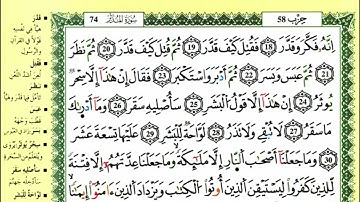 حِزْب 58
سُورَةُ المُدَّثِّر 74
إِنَّهُۥ فَكَّرَ وَقَدَّرَ (18) فَقُتِلَ كَيْفَ قَدَّرَ (19) ثُمَّ قُتِلَ كَيْفَ قَدَّرَ (20) ثُمَّ نَظَرَ
(21) ثُمَّ عَبَسَ وَبَسَرَ (22) ثُمَّ أَدْبَرَ وَٱسْتَكْبَرَ (23) فَقَالَ إِنْ هَٰذَآ إِلَّا سِحْرٌ
يُؤْثَرُ (24) إِنْ هَٰذَآ إِلَّا قَوْلُ ٱلْبَشَرِ (25) سَأُصْلِيهِ سَقَرَ (26) وَمَآ أَدْرَىٰكَ
مَا سَقَرُ (27) لَا تُبْقِى وَلَا تَذَرُ (28) لَوَّاحَةٌ لِّلْبَشَرِ (29) عَلَيْهَا تِسْعَةَ عَشَرَ
(30) وَمَا جَعَلْنَآ أَصْحَٰبَ ٱلنَّارِ إِلَّا مَلَٰٓئِكَةً وَمَا جَعَلْنَا عِدَّتَهُمْ إِلَّا فِتْنَةً
لِّلَّذِينَ كَفَرُوا۟ لِيَسْتَيْقِنَ ٱلَّذِينَ أُوتُوا۟ ٱلْكِتَٰبَ وَيَزْدَادَ ٱلَّذِينَ ءَامَنُوٓا۟ إِيمَٰنًا
قَدَّرَ
هَيَّأَ فِي نَفْسِهِ
قَوْلًا فِي القُرْآنِ
وَالرَّسُولِ
فَقُتِلَ
نَظَرَ
عَبَسَ
سَأُصْلِيهِ سَقَرَ
لَوَّاحَةٌ لِلْبَشَرِ